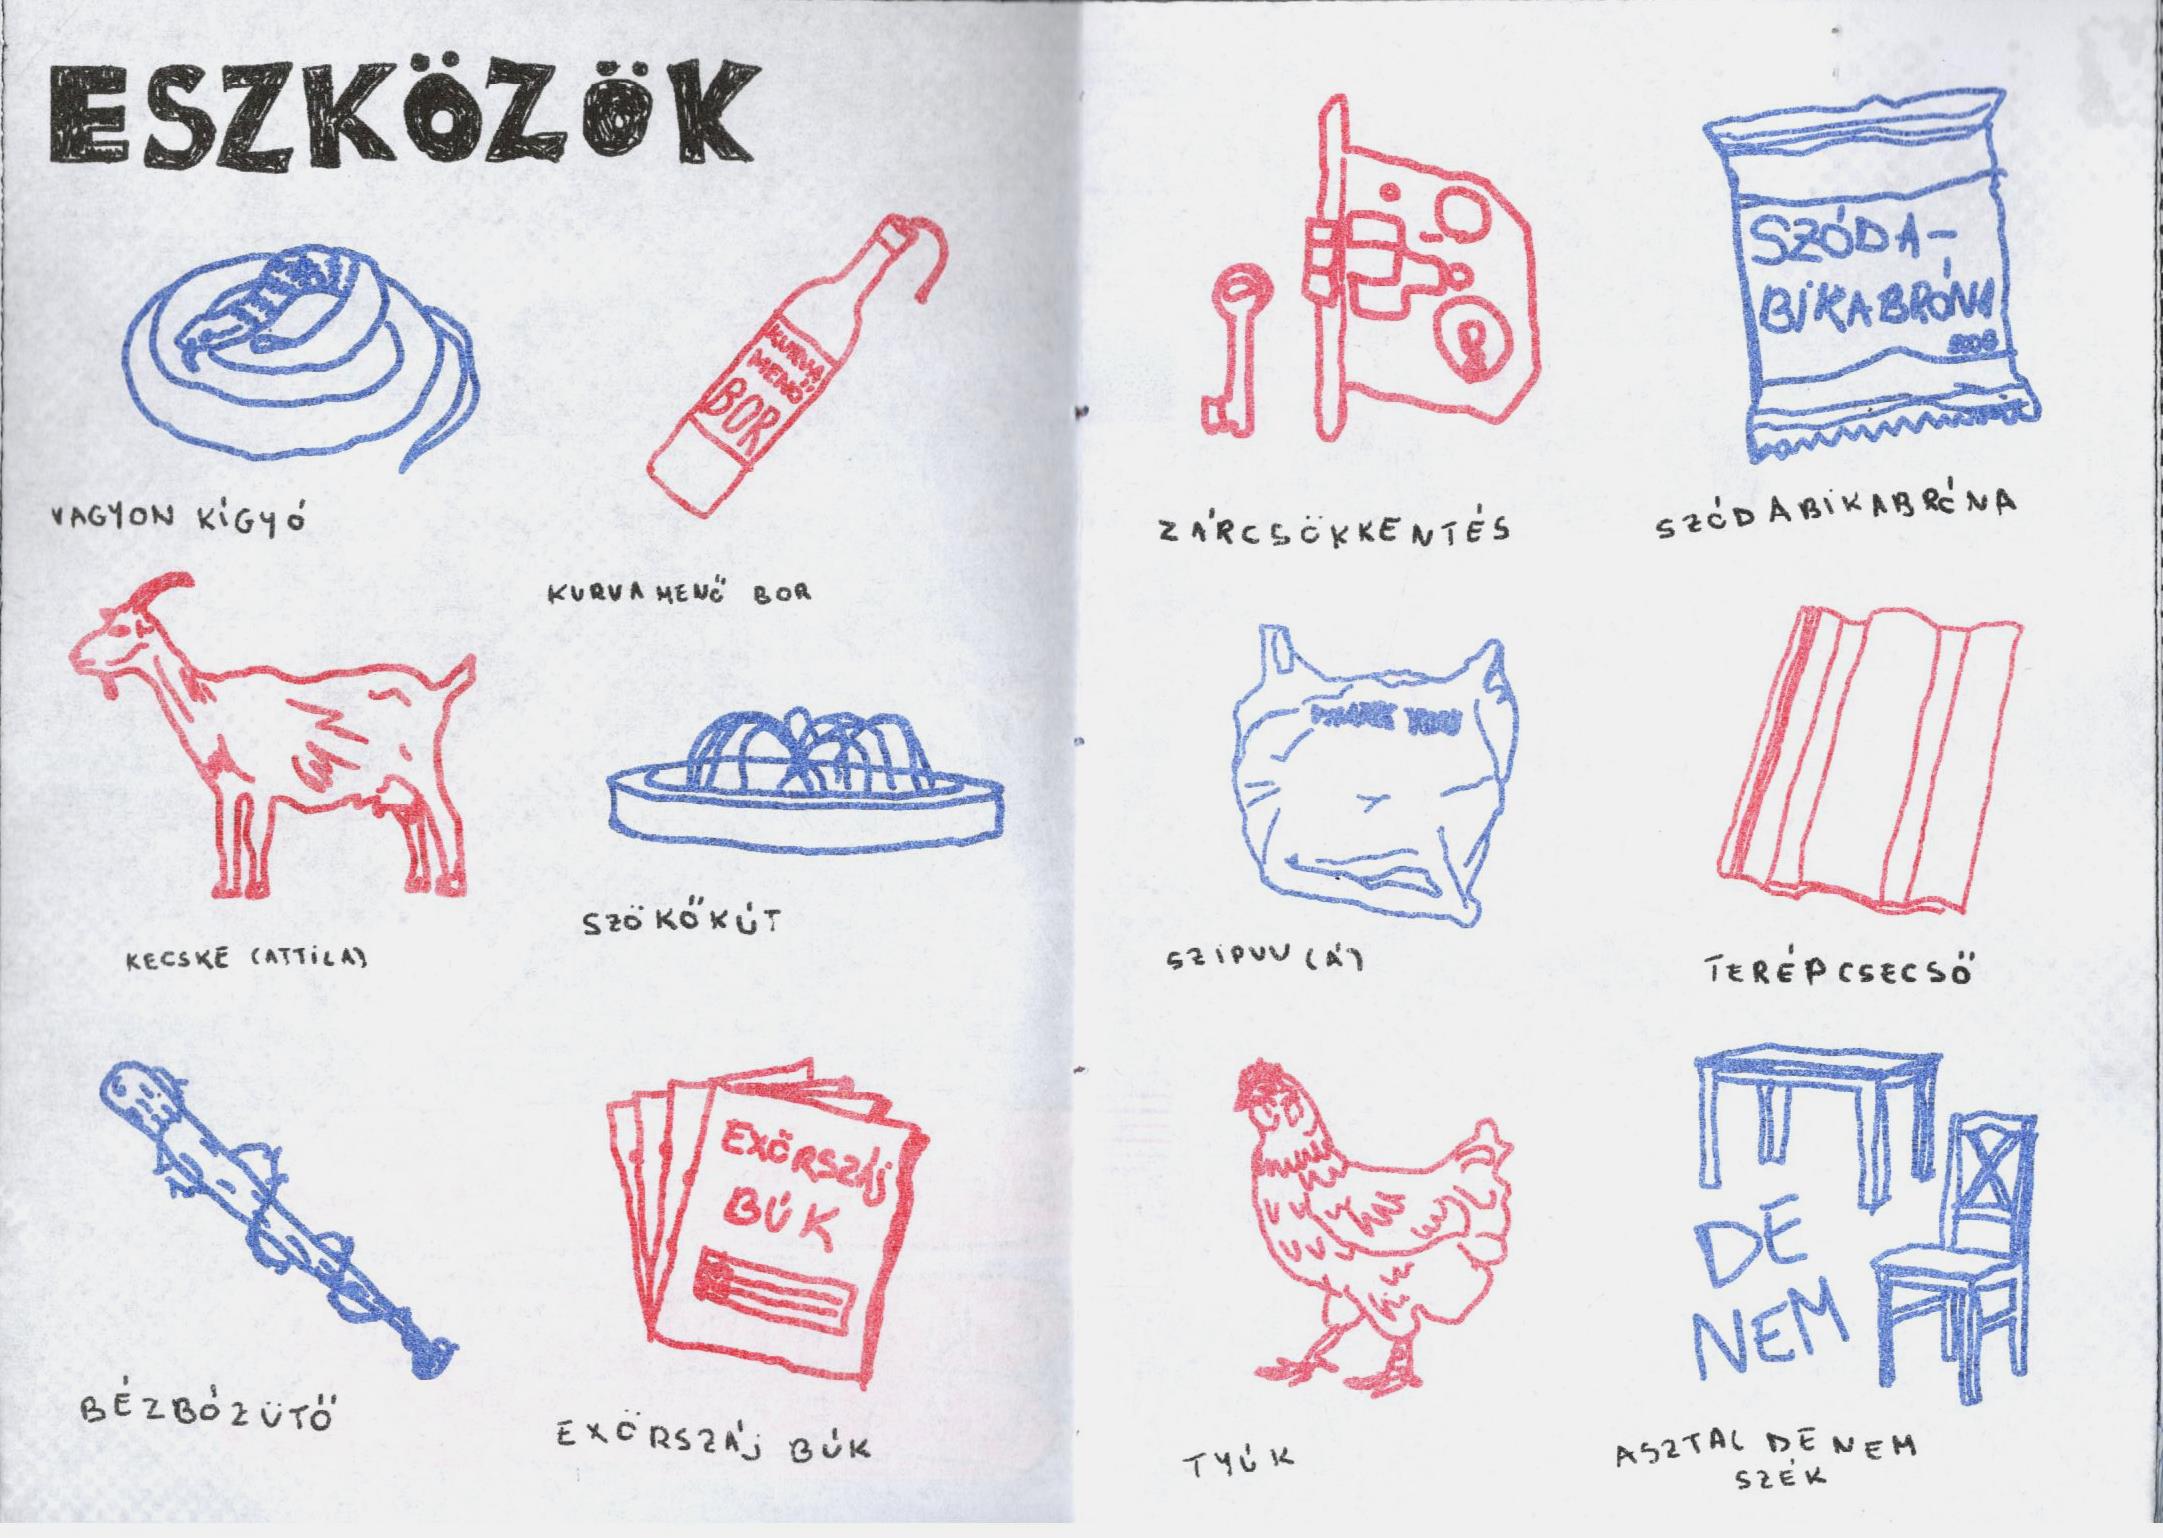 ESZKÖZÖK
KURVA
MENŐ
BOR
VAGYON KÍGYÓ
KURVA MENŐ BOR
KECSKE (ATTILA)
SZÖKŐKÚT
BÉZBÓZÜTŐ
EXÖRSZÁJ
BÚK
EXÖRSZÁJ BÚK
SZÓDA-
BIKABRÓNA
ZÁRCSÖKKENTÉS
SZÓDABIKABRÓNA
THANK YOU
SZIPUU(Á)
TERÉPCSECSŐ
DE
NEM
TYÚK
ASZTAL DE NEM
SZÉK